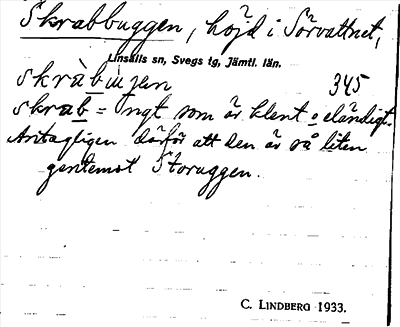 Skrabbuggen, höjd i Sörvattnet,
Linsälls sn, Svegs tg, Jämtl. län.
345
skràbùgen
skrab = ngt som är klent o eländigt.
Antagligen därför att den är så liten
gentemot Storuggen.
C. LINDBERG 1933.